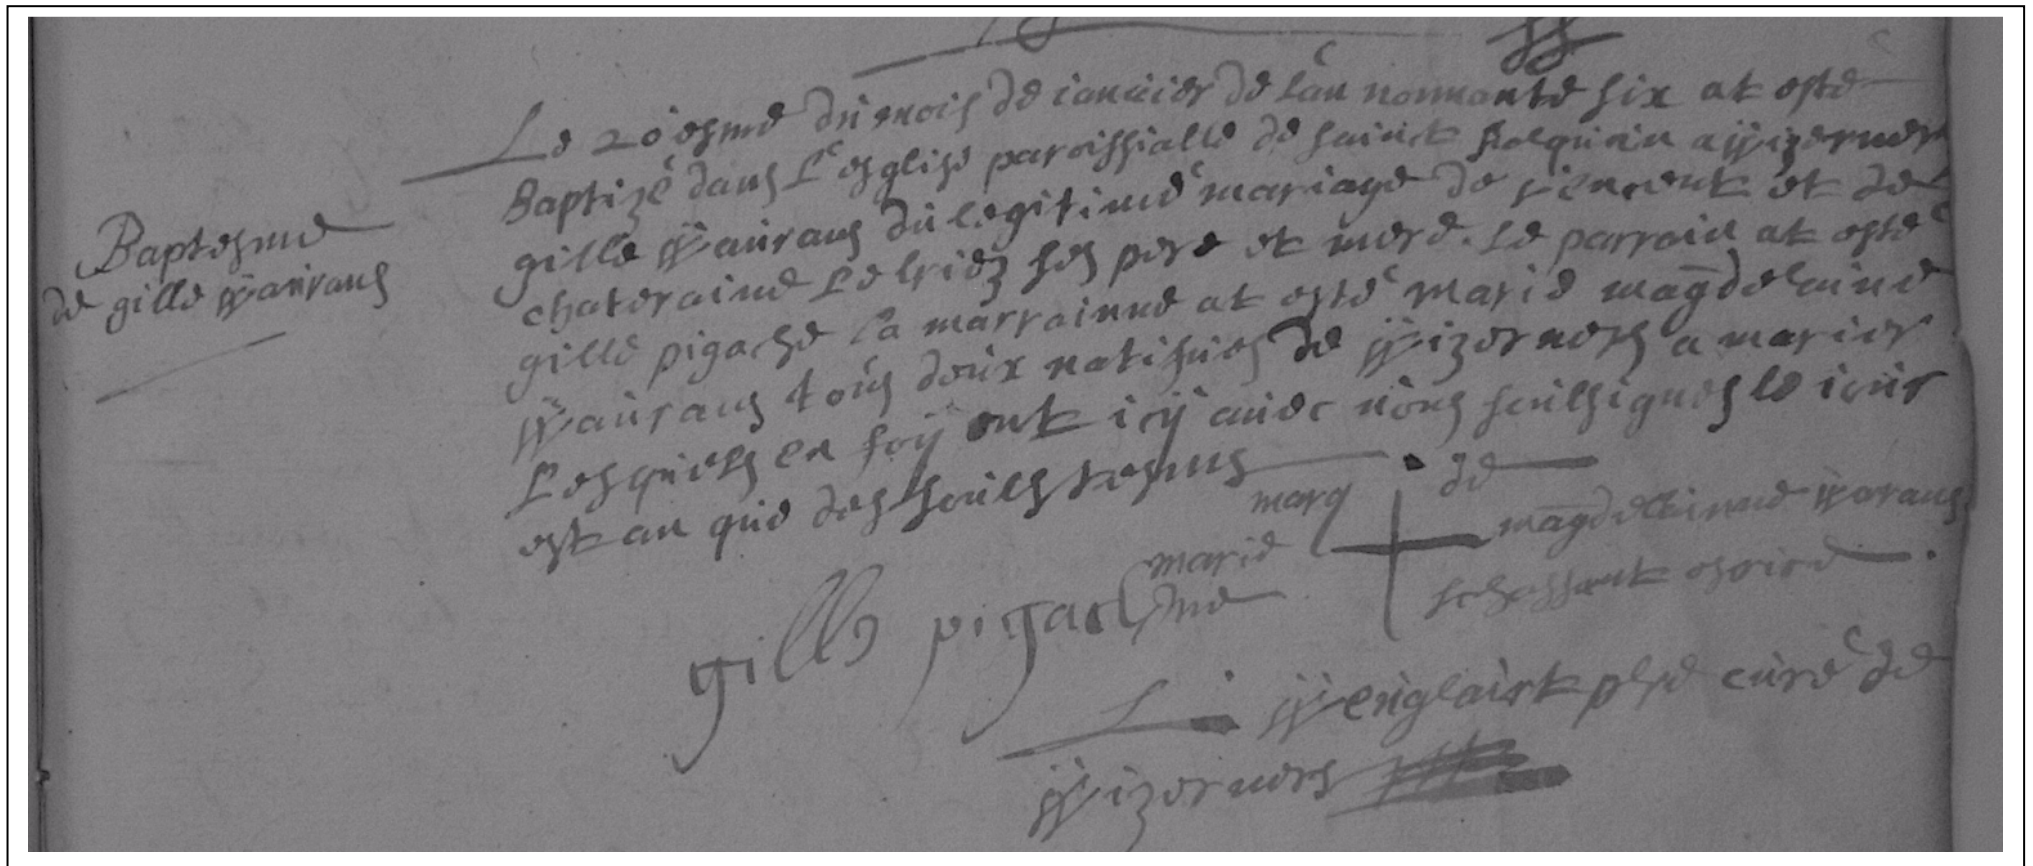 Baptesme
de gille Wauraus
Le 20 esme du mois de ianuier de l'an nonnante six at esté
Baptizé dans l'esglise paroissialle de sainct folquuin a Wizernes
gille Wauraus du legitime mariage de vincent et de
chateraine Lelriez ses pere et mere. le parrain at esté
gille pigache la marrainne at esté marie magdelaine
Wauraus tous deux natifues de Wizernes a marier
Lesquels en foy ont icy auec nous soulsignes le iour
est an que des soulstesmes
marq de
marie magdelainne Waraus
ne scachant escrire
gille pigache
L Wenglairt pbre curé de
Wizernes